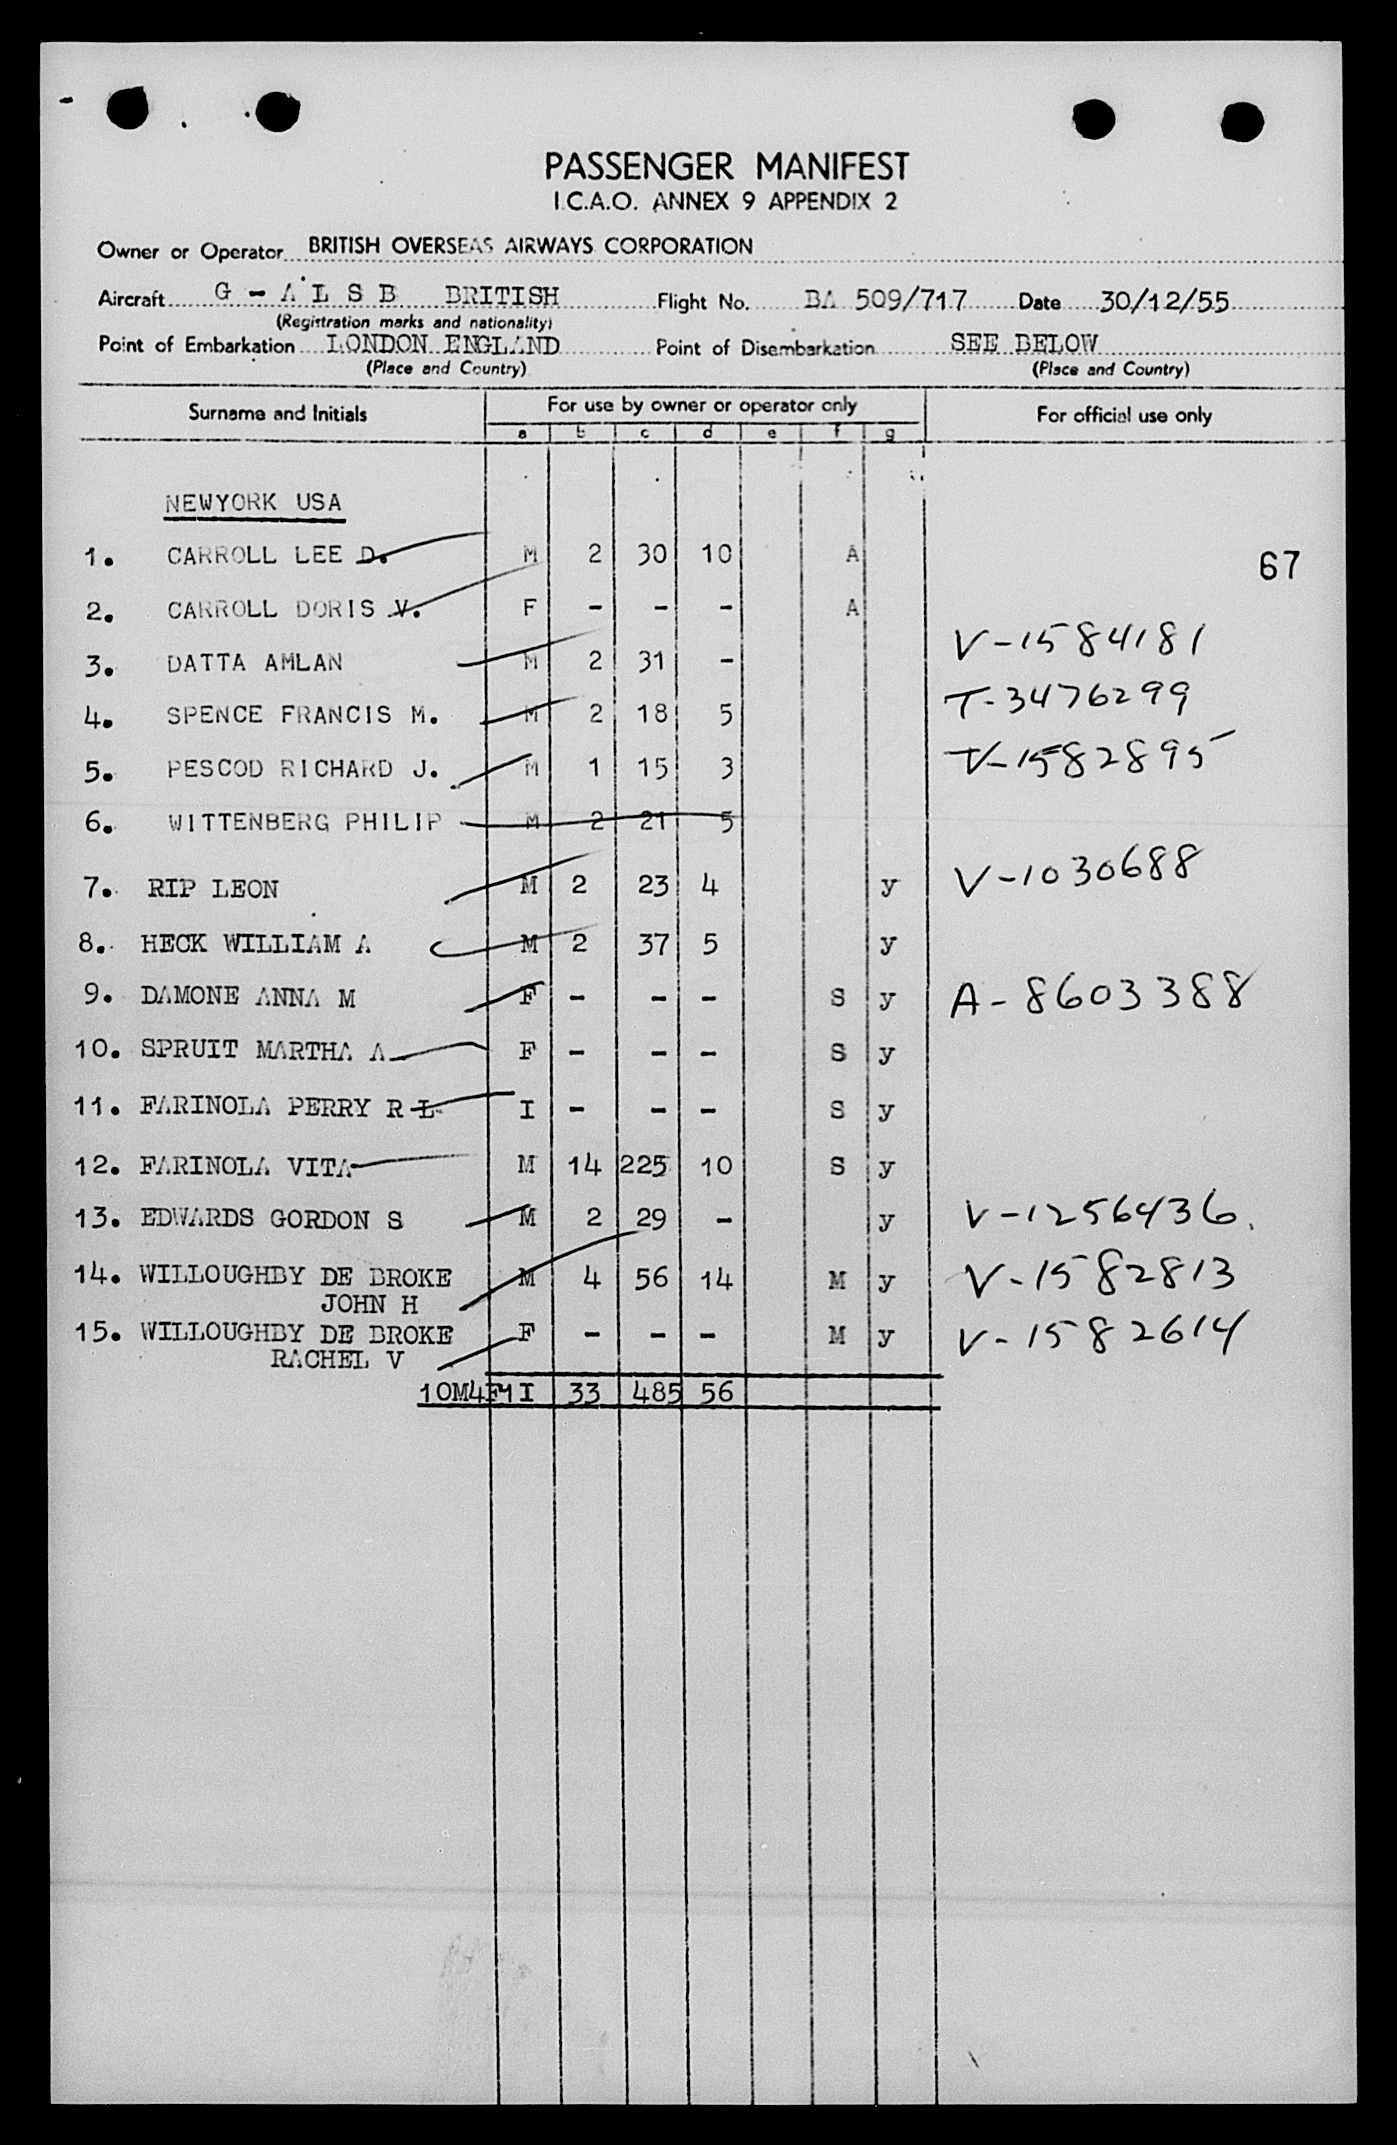 PASSENGER MANIFEST
I.C.A.O. ANNEX 9 APPENDIX 2
Owner or Operator BRITISH OVERSEAS AIRWAYS CORPORATION
Aircraft G - A L S B BRITISH Flight No. BA 509/717 Date 30/12/55
(Registration marks and nationality)
Point of Embarkation LONDON ENGLAND Point of Disembarkation SEE BELOW
(Place and Country) (Place and Country)
Surname and Initials For use by owner or operator only For official use only
a b c d e f g
NEWYORK USA
1. CARROLL LEE D. M 2 30 10 A 67
2. CARROLL DORIS V. F - - - A
3. DATTA AMLAN M 2 31 - V-1584181
4. SPENCE FRANCIS M. M 2 18 5 T-3476299
5. PESCOD RICHARD J. M 1 15 3 V-1582895
6. WITTENBERG PHILIP M 2 21 5
7. RIP LEON M 2 23 4 y V-1030688
8. HECK WILLIAM A M 2 37 5 y
9. DAMONE ANNA M F - - - S y A-8603388
10. SPRUIT MARTHA A F - - - S y
11. FARINOLA PERRY R L I - - - S y
12. FARINOLA VITA M 14 225 10 S y
13. EDWARDS GORDON S M 2 29 - y V-1256436.
14. WILLOUGHBY DE BROKE M 4 56 14 M y V-1582813
JOHN H
15. WILLOUGHBY DE BROKE F - - - M y V-1582614
RACHEL V
10M4F1I 33 485 56